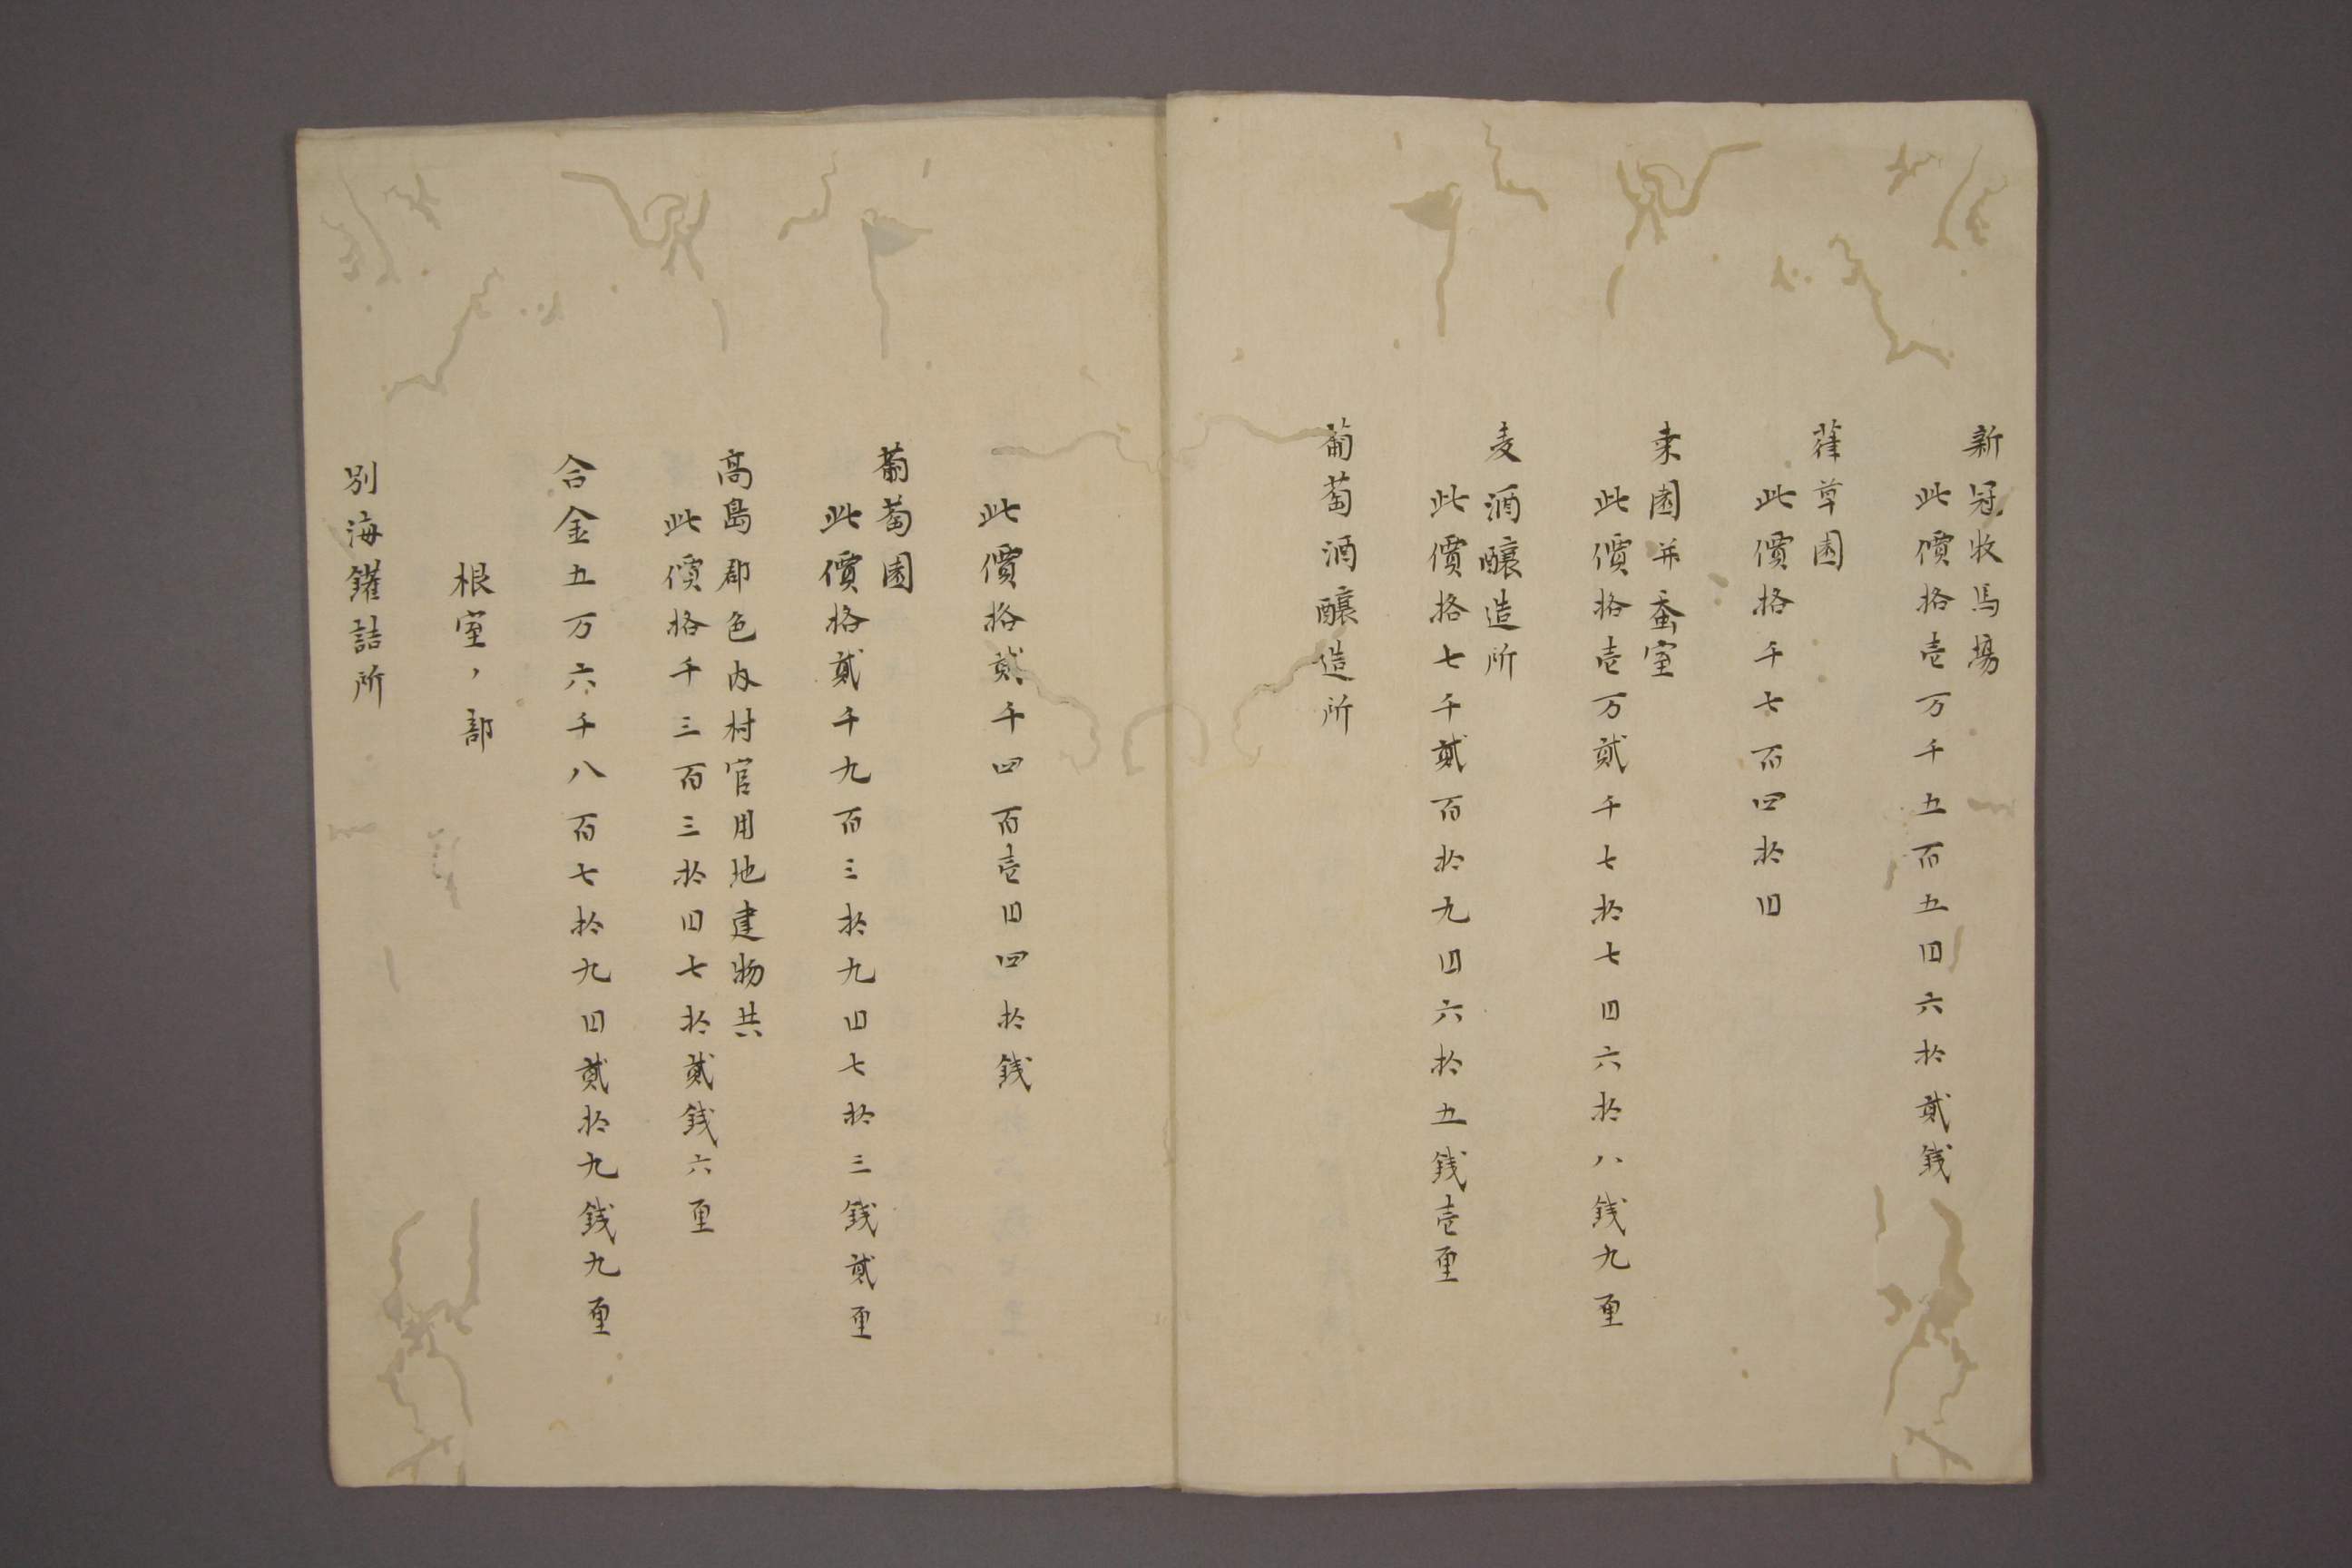 新冠牧馬場
此價格壱万千五百五円六拾貳銭
葎草園
此價格千七百四拾円
桒園并蚕室
此價格壱万貳千七拾七円六拾八銭九厘
麦酒醸造所
此價格七千貳百拾九円六拾五銭壱厘
葡萄酒醸造所
此價格貳千四百壱円四拾銭
葡萄園
此價格貳千九百三拾九円七拾三銭貳厘
高島郡色内村官用地建物共
此價格千三百三拾円七拾貳銭六厘
合金五万六千八百七拾九円貳拾九銭九厘
根室ノ部
別海鑵詰所